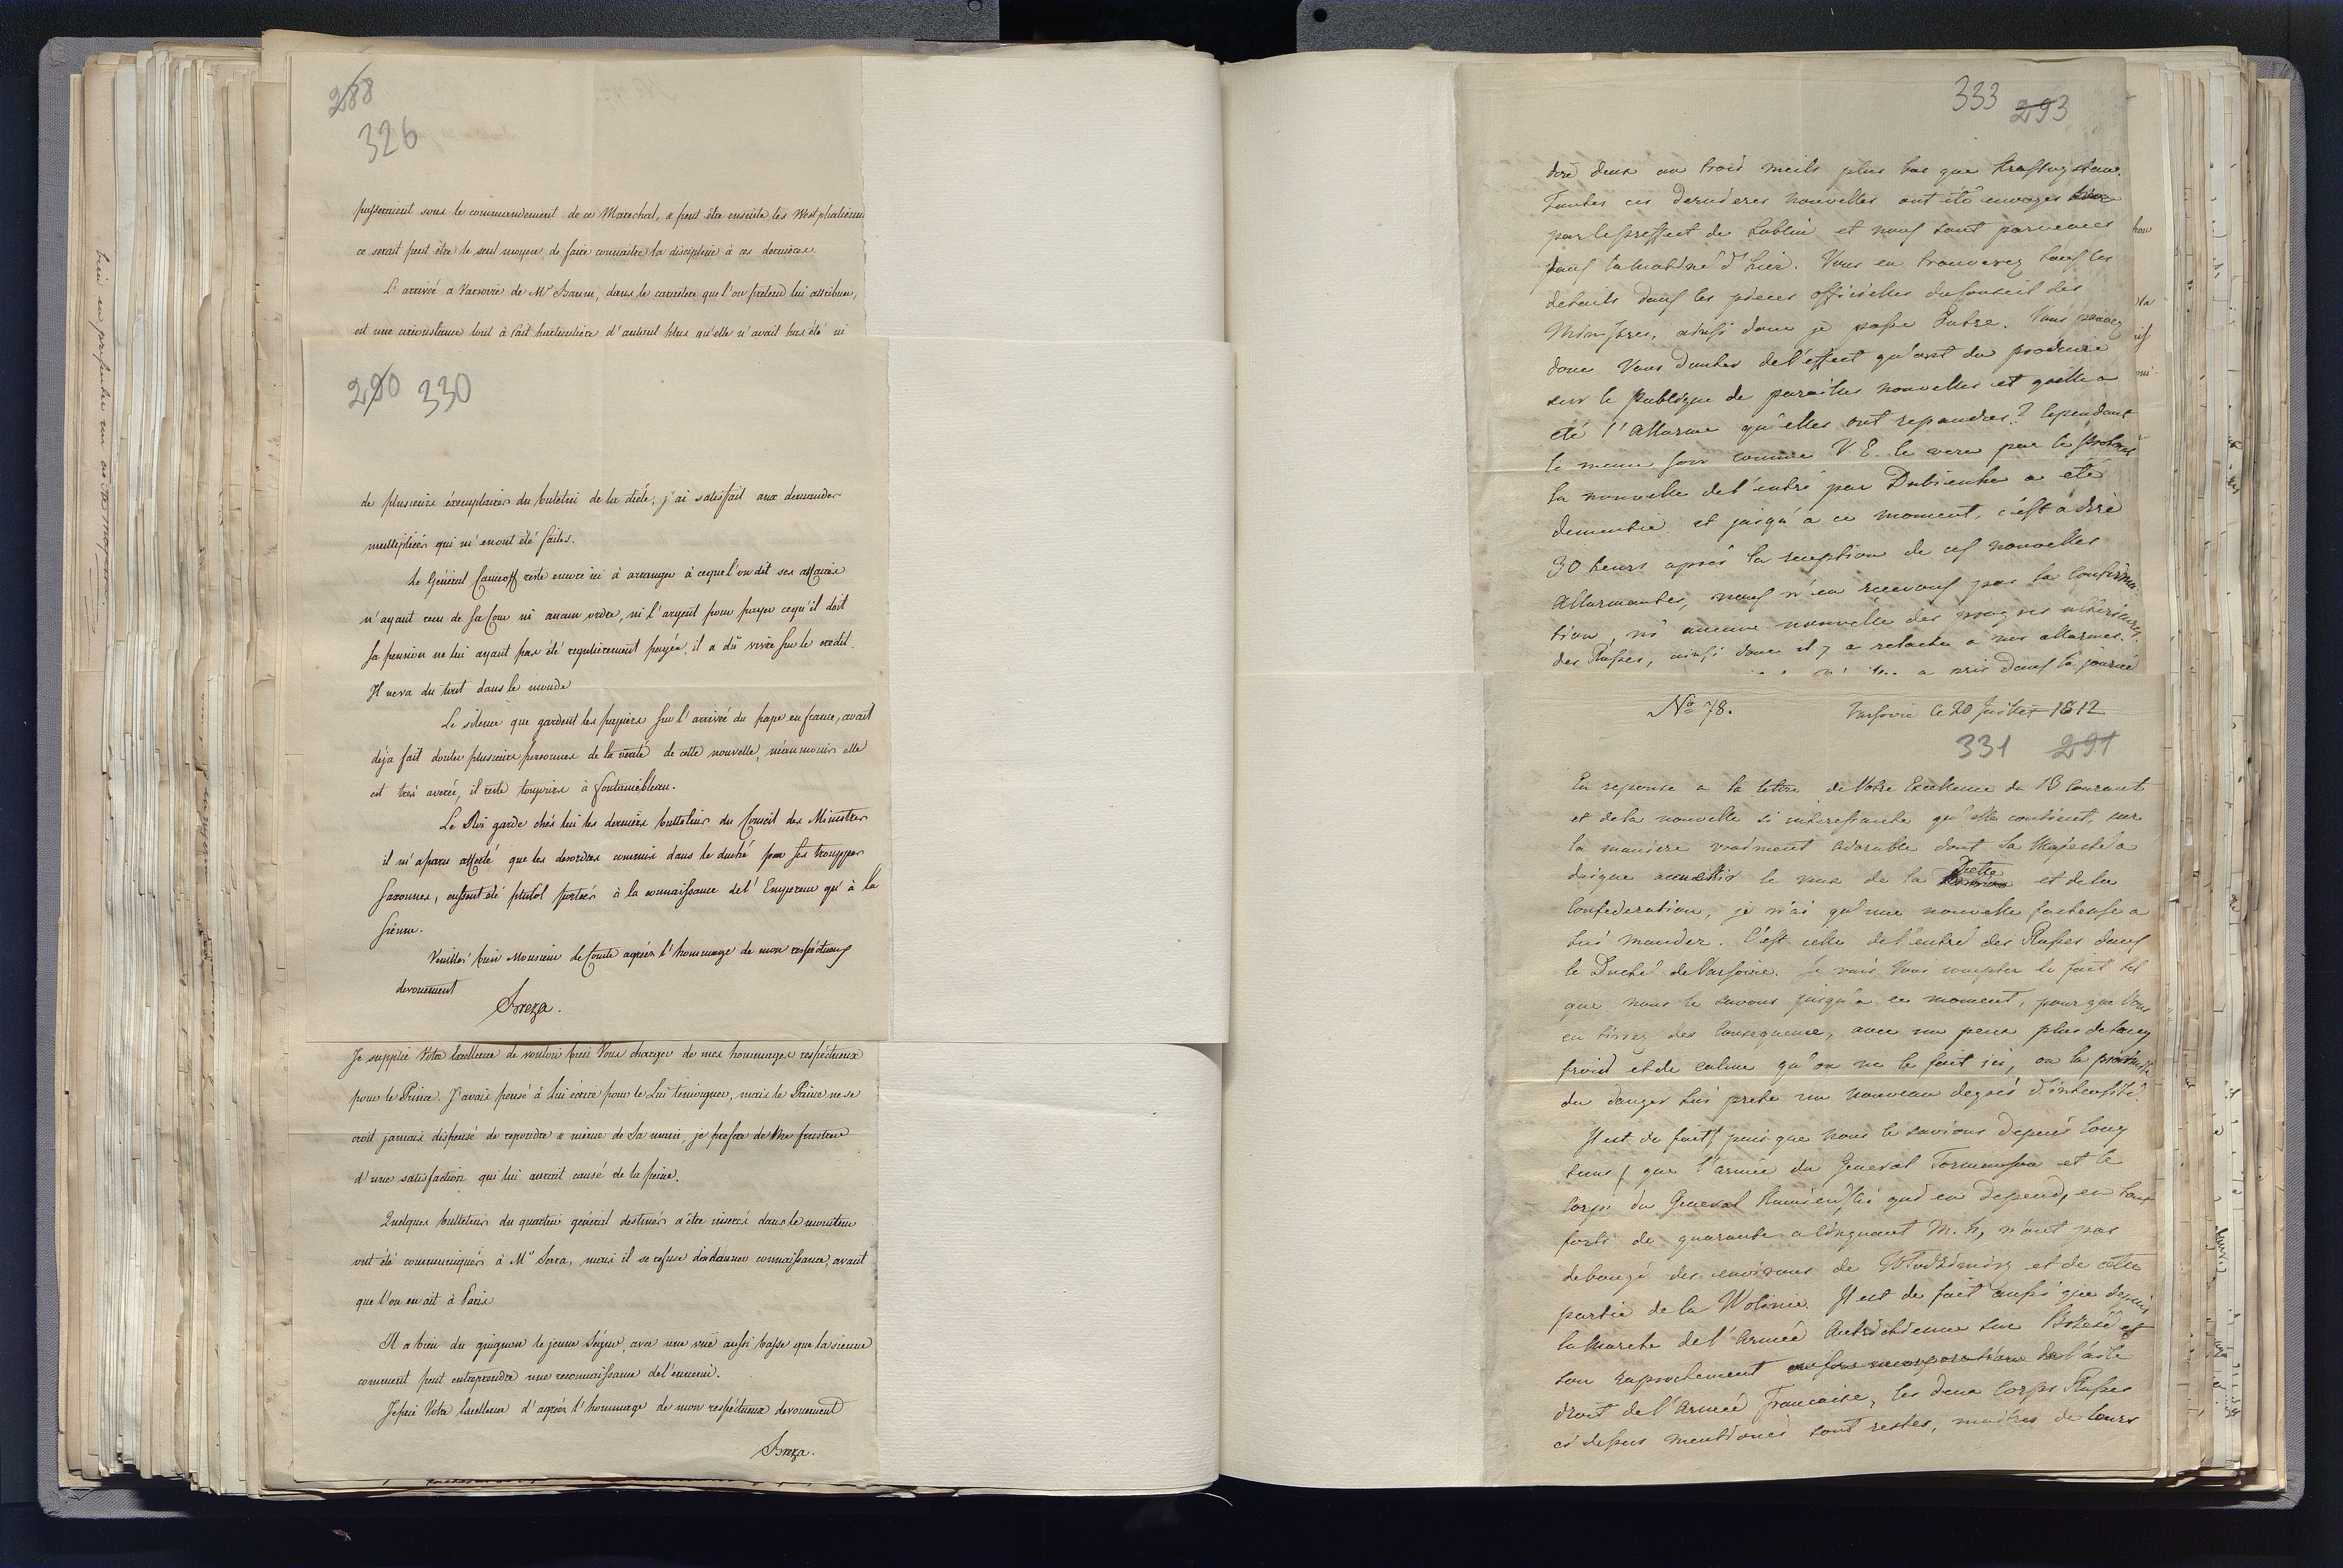 288
326
passeraient sous le commandement de ce Marechal, & peut être ensuite les Westphaliens
ce serait peut être le seul moyen de faire connaitre la discipline à ces dernières.
L'arrivée à Varsovie de Mr Baum, dans le caractere que l'on pretend lui attribuer,
est une circonstance tout à fait particuliere d'autant plus qu'elle n'avait pas été ni
290 330
de plusieurs éxemplaires du buletin de la diéte, j'ai satisfait aux demandes
multipliées qui m'enont été faites.
Le Général reste encore ici à arranger à cequel'on dit ses affaires
n'ayant recu de sa Cour ni aucun ordre, ni l'argent pour payer cequ'il doit
sa pension ne lui ayant pas été regulierement payée, il a dû vivre sur le credit.
Il neva du tout dans le monde
Le silence que gardent les papiers sur l'arrivée du pape en france, avait
déja fait douter plusieurs personnes de la verité de cette nouvelle, néanmoins elle
est tres averée, il reste toujours à Fontainebleau.
Le Roi garde chés lui les derniers bulletins du Conseil des Ministres
il m'aparu affecté que les desordres commis dans le duché par ses trouppes
saxonnes, eussent été plutot portés à la connaissance del'Empereur qu'à la
sienne.
Veuillés bien Monsieur le Comte agréer l'hommage de mon respéctueux
devouement
Breza.
Je supplie Votre Excellence de vouloir bien Vous charger de mes hommages respéctueux
pour le Prince. J'avais pensé à Lui écrire pour le Lui temoigner, mais le Prince ne se
croit jamais dispensé de repondre & même de Sa main, je prefere de me frustrer
d'une satisfaction qui lui aurait causé de la peine.
Quelques bulletins du quartier général destinés à être inserés dans le moniteur
ont été communiqués à Mr Serra, mais il se refuse d'endonner connaissance, avant
que l'on en ait à Paris
Il a bien du guignon le jeune Ségur, avec une vuë aussi basse que la sienne
comment peut entreprendre une reconnaissance del'ennemi.
Jeprie Votre Excellence d'agréer l'hommage de mon respéctueux devouement
Breza.
333 293
deux ou trois meils plus bas que
Toutes ces dernieres nouvelles ont été envoyés
par le preffect de Lublin et nous sont parvenues
dans la matiné d'hier. Vous en trouverez tous les
details dans les pieces officielles du Conseil des
Ministres, ainsi donc je passe outre. Vous pouvez
donc Vous douter de l'effect qu'ont du produire
sur le Publique de pareilles nouvelles et quelle a
été l'Allarme qu'elles ont repandues? Cependant
le meme soir comme V. E. le verra par le
la nouvelle de l'entré par Dubienka a été
dementie et jusqu'a ce moment, c'est a dire
30 heurs aprés la reception de ces nouvelles
Allarmantes, nous n'en recevons pas la Confirma-
tion, ni aucune nouvelle des progres ulterieures
des Russes, ainsi donc il y a relache a nos allarmes.
a pris dans la journé
No 78. Varsovie le 20 Juillet 1812
331 291
En reponse a la lettre de Votre Excellence du 13 Courant
et de la nouvelle si interessante qu'elle contient, sur
la maniere vraiment adorable dont Sa Majesté a
daigné accueillir le voeux de la Diette et de la
Confederation, je n'ai qu'une nouvelle facheuse a
Lui mander. C'est celle de l'entré des Russes dans
le Duché de Varsovie. Je vais Vous compter le fait tel
que nous le savons jusqu'a ce moment, pour que Vous
en tiriez des Consequence, avec un peux plus de sang
froid et de calme qu'on ne le fait ici, ou la proximité
du danger Lui prete un nouveau degrés d'intensité.
Il est de fait (puisque nous le savions depuis long
tems) que l'armée du General Tormansow et le
Corps du General Kamieński qui en depend, en tout
forts de quarante a Cinquant m. h, n'ont pas
debougé des environs de Włodzimirz et de cette
partie de la Wolinie. Il est de fait aussi que depuis
la marche de l'Armée Autrichienne sur et
son raprochement de l'aile
droit de l'Armée Francaise, les deux Corps Russes
ci dessus mentionés sont restes, maitres de leurs